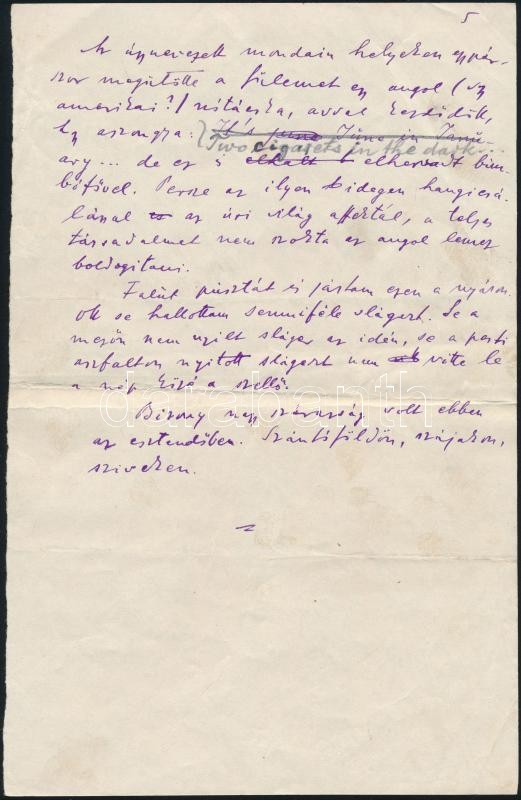 5
Az úgynevezett mondain helyeken egypár-
szor megütötte a fülemet egy angol (vagy
amerikai?) nótácska, avval kezdődik,
hogy aszongya: It's June in Janu-
Two cigarets in the dark...
ary... de ez is elhalt elhervadt bim-
bótfővel. Persze az ilyen idegen hangicsá-
lással is az úri világ affektál, a teljes
társadalmat nem szokta az angol lemez
boldogítani.
Falút pusztát is jártam ezen a nyáron.
Ott se hallottam semmiféle slágert. Se a
mezőn nem nyílt sláger az idén, se a pesti
aszfalton nyitott slágert nem vitte le
a nép közé a szellő.
Bizony nagy szárazság volt ebben
az esztendőben. Szántóföldön, szájakon,
sziveken.
darabanth